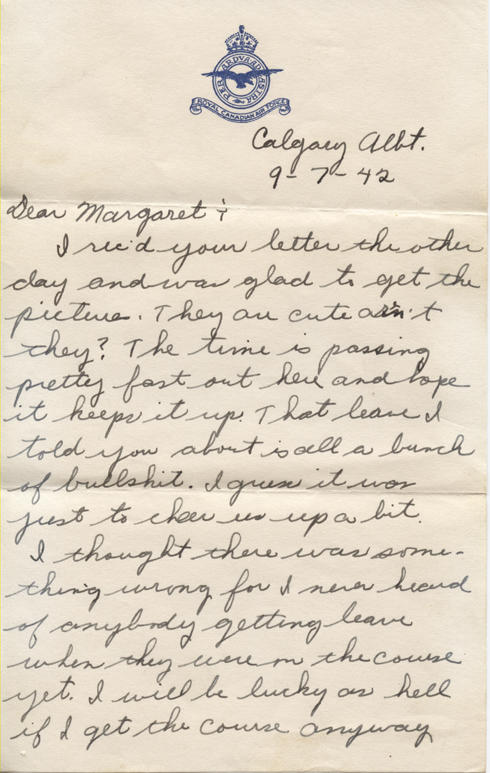 PER ARDUA AD ASTRA
ROYAL CANADIAN AIR FORCE
Calgary Albt.
9-7-42
Dear Margaret:
I rec'd your letter the other
day and was glad to get the
pictures. They are cute arn't
they? The time is passing
pretty fast out here and hope
it keeps it up. That leave I
told you about is all a bunch
of bullshit. I guess it was
just to cheer us up a bit.
I thought there was some-
thing wrong for I never heard
of anybody getting leave
when they were on the course
yet. I will be lucky as hell
if I get the course anyway